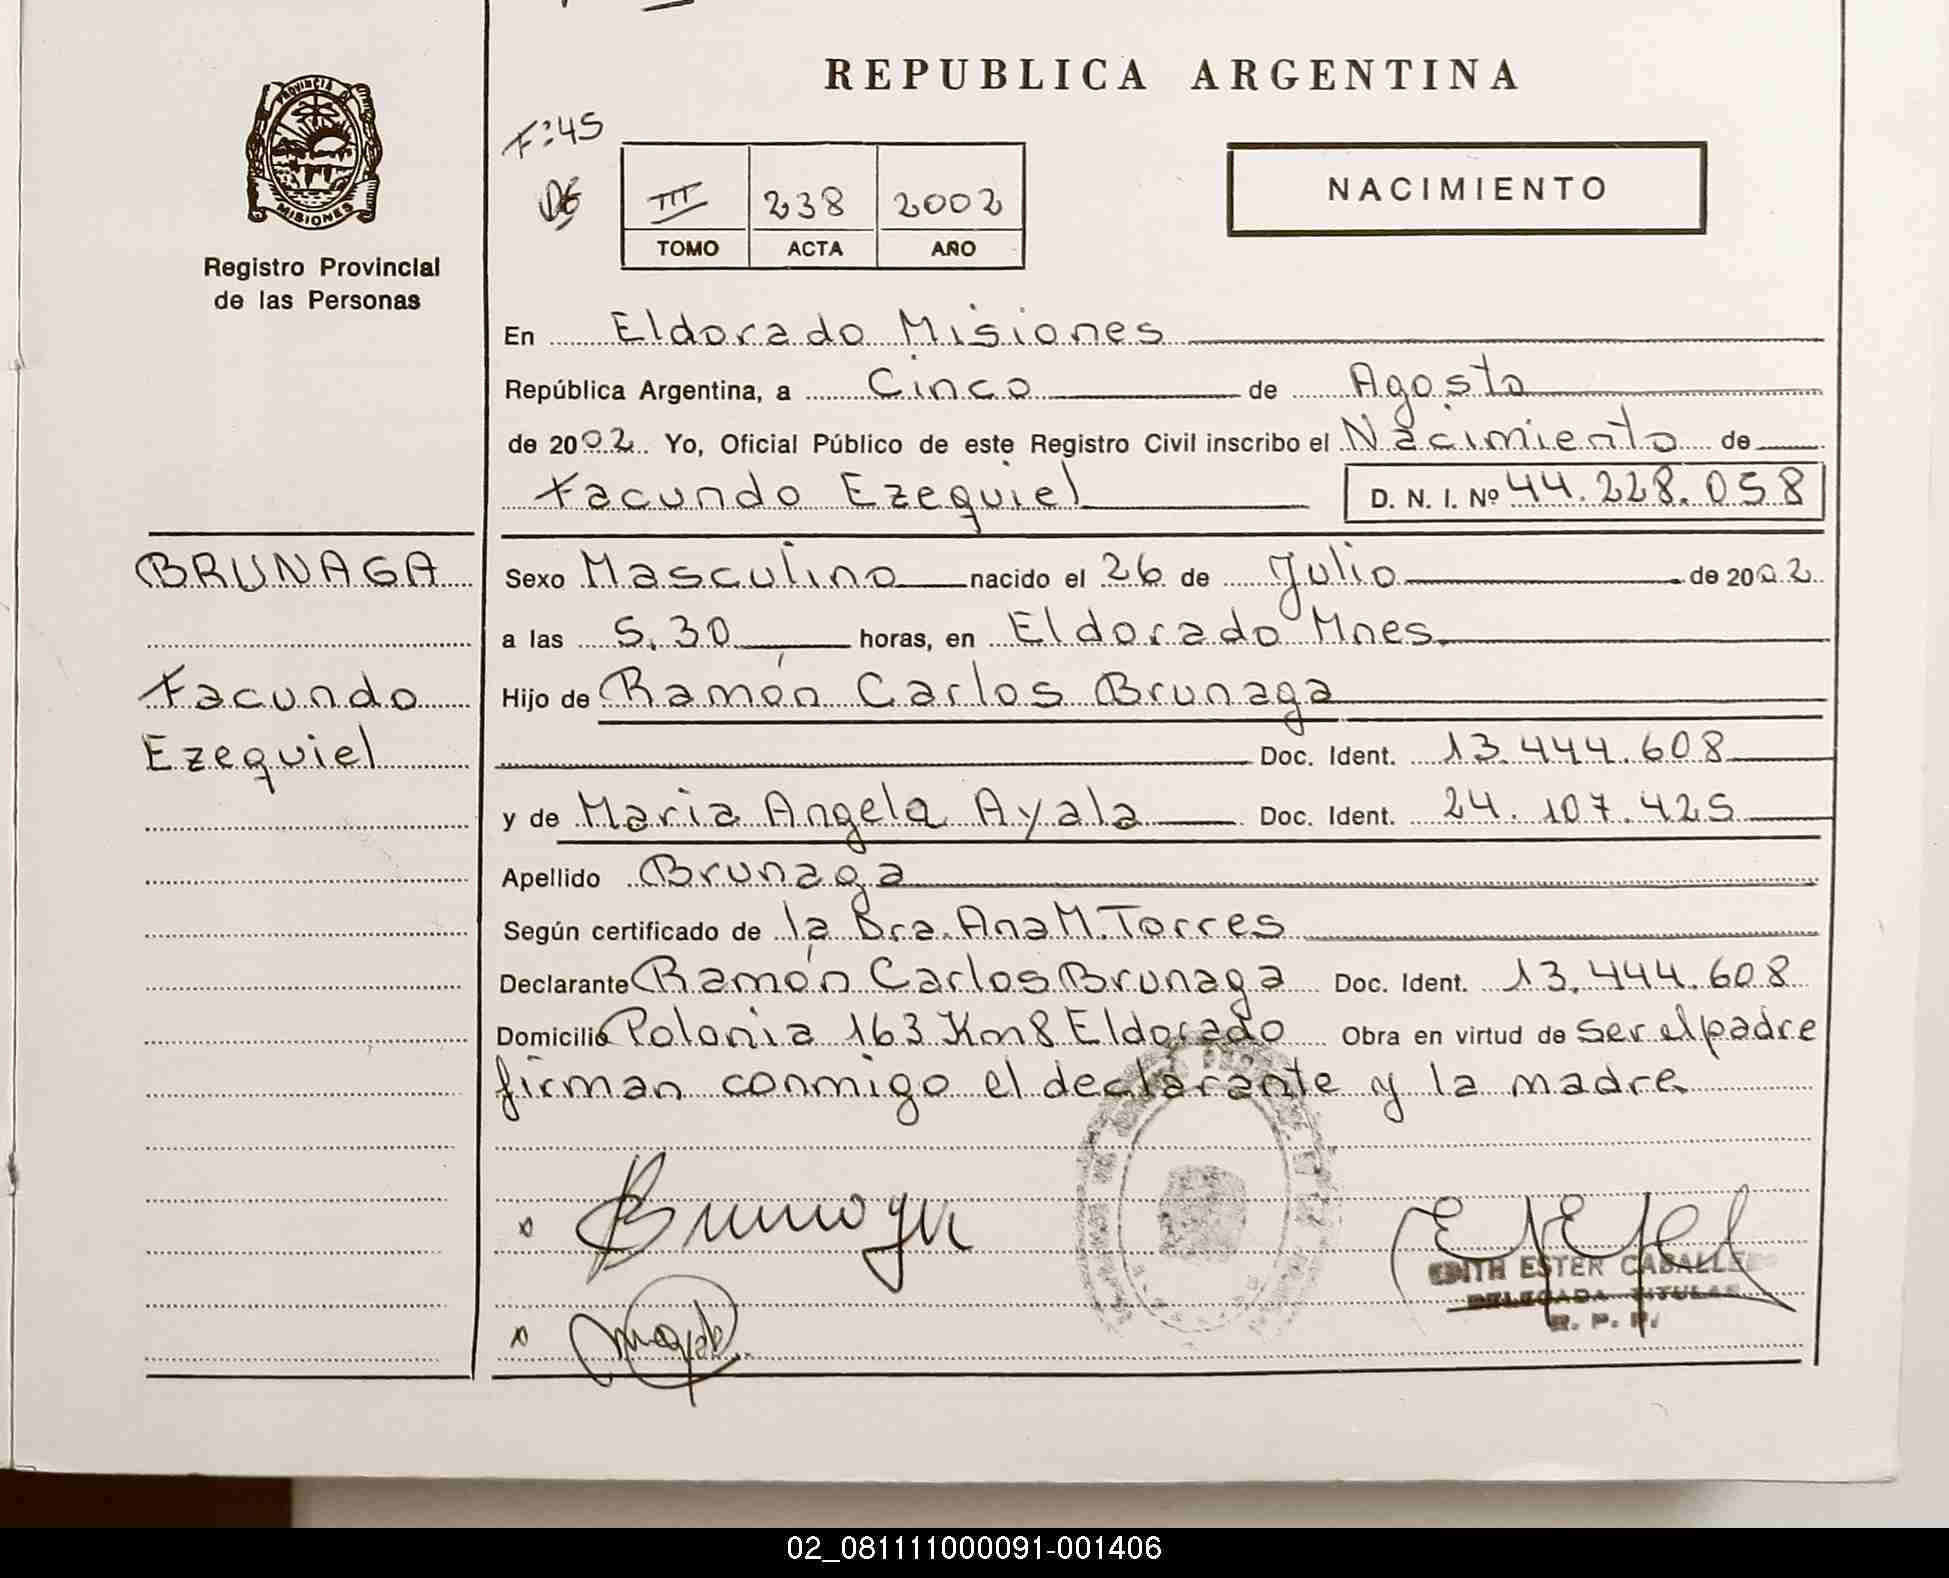 REPUBLICA ARGENTINA
PROVINCIA DE
MISIONES
Registro Provincial
de las Personas
F:45
III 238 2002
TOMO ACTA AÑO
NACIMIENTO
En Eldorado Misiones
República Argentina, a Cinco de Agosto
de 2002. Yo, Oficial Público de este Registro Civil inscribo el Nacimiento de
Facundo Ezequiel D. N. I. Nº 44.228.058
BRUNAGA
Facundo
Ezequiel
Sexo Masculino nacido el 26 de Julio de 2002
a las 5.30 horas, en Eldorado Mnes.
Hijo de Ramón Carlos Brunaga
Doc. Ident. 13.444.608
y de Maria Angela Ayala Doc. Ident. 24.107.425
Apellido Brunaga
Según certificado de la Dra. Ana M. Torres
Declarante Ramón Carlos Brunaga Doc. Ident. 13.444.608
Domicilio Polonia 163 Km 8 Eldorado Obra en virtud de ser el padre
firman conmigo el declarante y la madre
x Brunaga
x
EDITH ESTER CABALLERO
DELEGADA TITULAR
R. P. P.
02_081111000091-001406